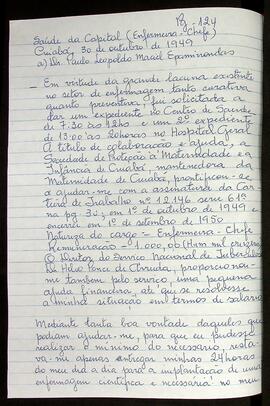 Pg - 124
Saúde da Capital (Enfermeira-Chefe)
Cuiabá, 30 de outubro de 1949
a) Dr. Paulo Leopoldo Maciel Epaminondas
Em virtude da grande lacuna existente
no setor de enfermagem tanto curativa
quanto preventiva, fui solicitada a
dar um expediente no Centro de Saúde
de 7.30 às 12hs e um 2º expediente
de 13:00 às 20horas no Hospital Geral
A título de colaboração e ajuda, a
Sociedade de Proteção à Maternidade e a
Infância de Cuiabá, mantenedora da
Maternidade de Cuiabá, prontificou-se
a ajudar-me com a assinatura da Car-
teira de Trabalho nº 12.146 serie 61ª
na pg. 30, em 1º de outubro de 1949 e
encerrou em 1º de setembro de 1950
Natureza do cargo - Enfermeira-Chefe
Remuneração - 1.000,00 (Hum mil cruzeiros)
O Diretor do Serviço Nacional de Tuberculose
Dr Hélio Ponce de Arruda, proporcionou-
me tambem pelo serviço, uma pequena
ajuda financeira, até que se resolvesse
a minha situação em termos de salário
Mediante tanta boa vontade daqueles que
podiam ajudar-me, para que eu pudesse
realizar o mínimo do necessário, resta-
va-me apenas entregar minhas 24 horas
do meu dia a dia para a implantação de uma
enfermagem científica e necessária no meu